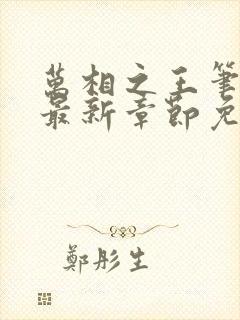 萬相之王筆
最新章節免
鄭彤生